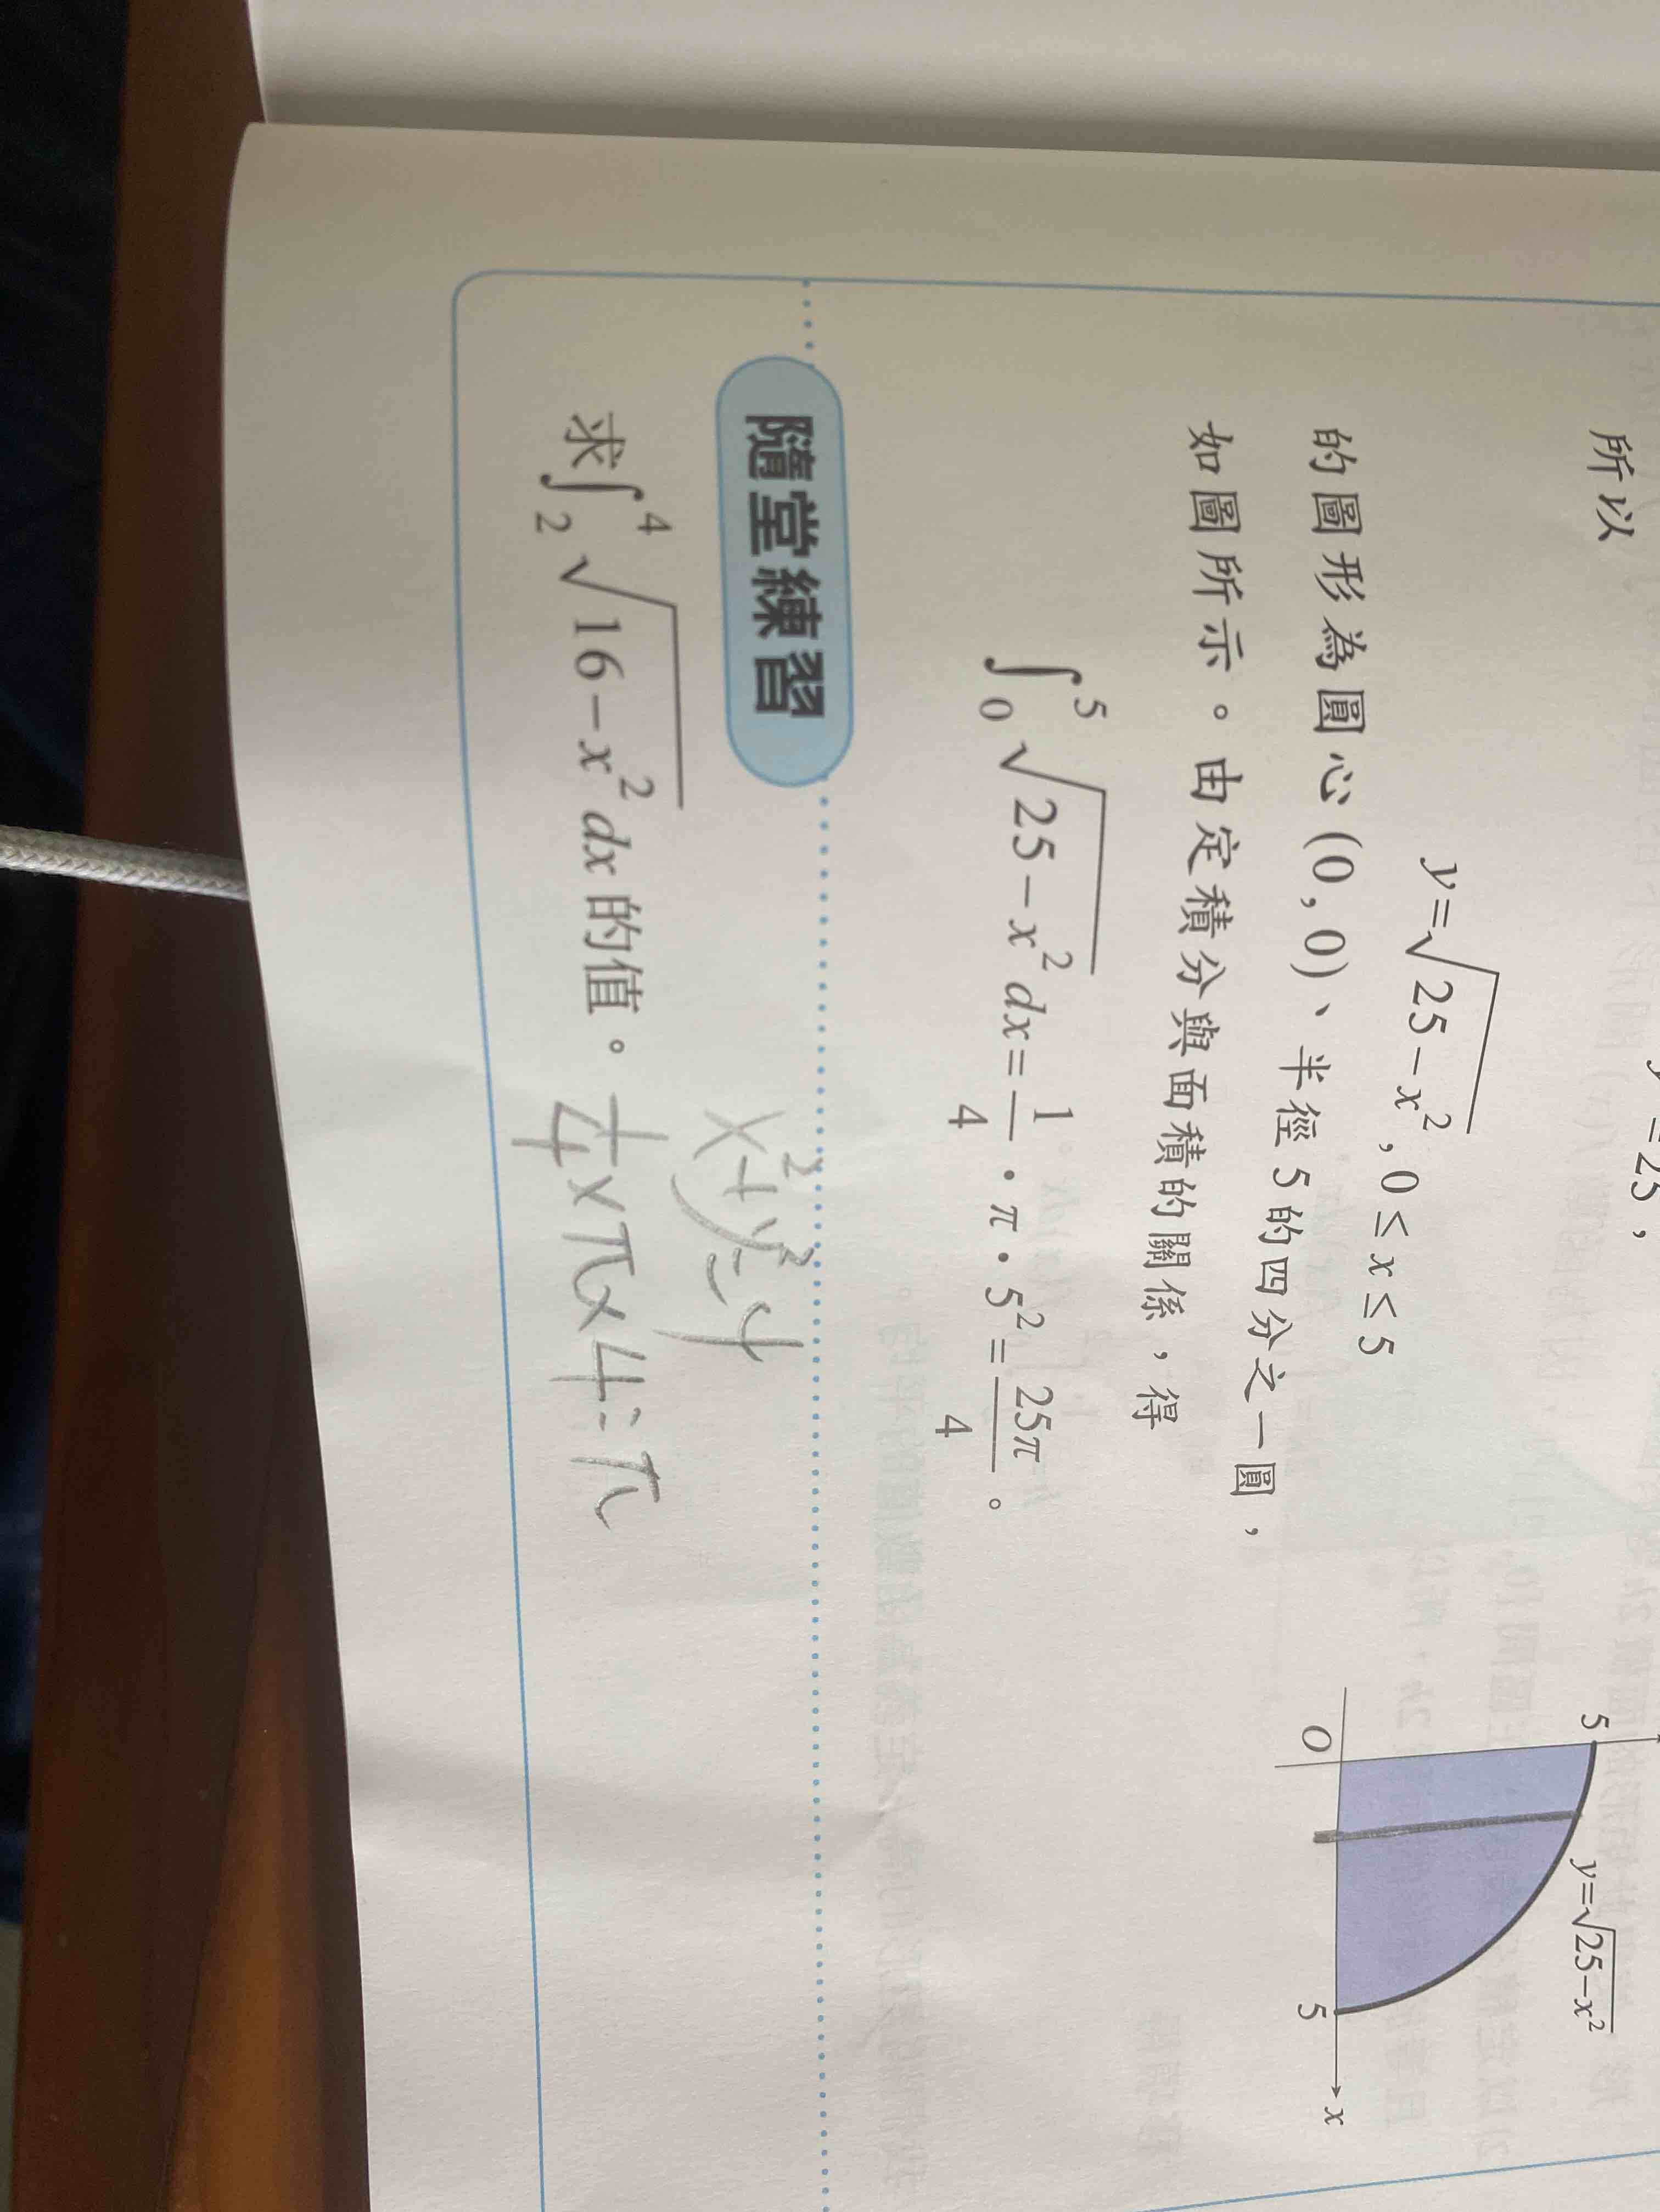 所以
y=√25-x², 0≤x≤5
的圖形為圓心(0,0)、半徑5的四分之一圓,
如圖所示。由定積分與面積的關係,得
∫₀⁵ √25-x² dx = 1/4 · π · 5² = 25π/4 。
5
y=√25-x²
O
5
x
隨堂練習
x²+y²=4
求∫₂⁴ √16-x² dx 的值。 1/4 × π × 4 = π